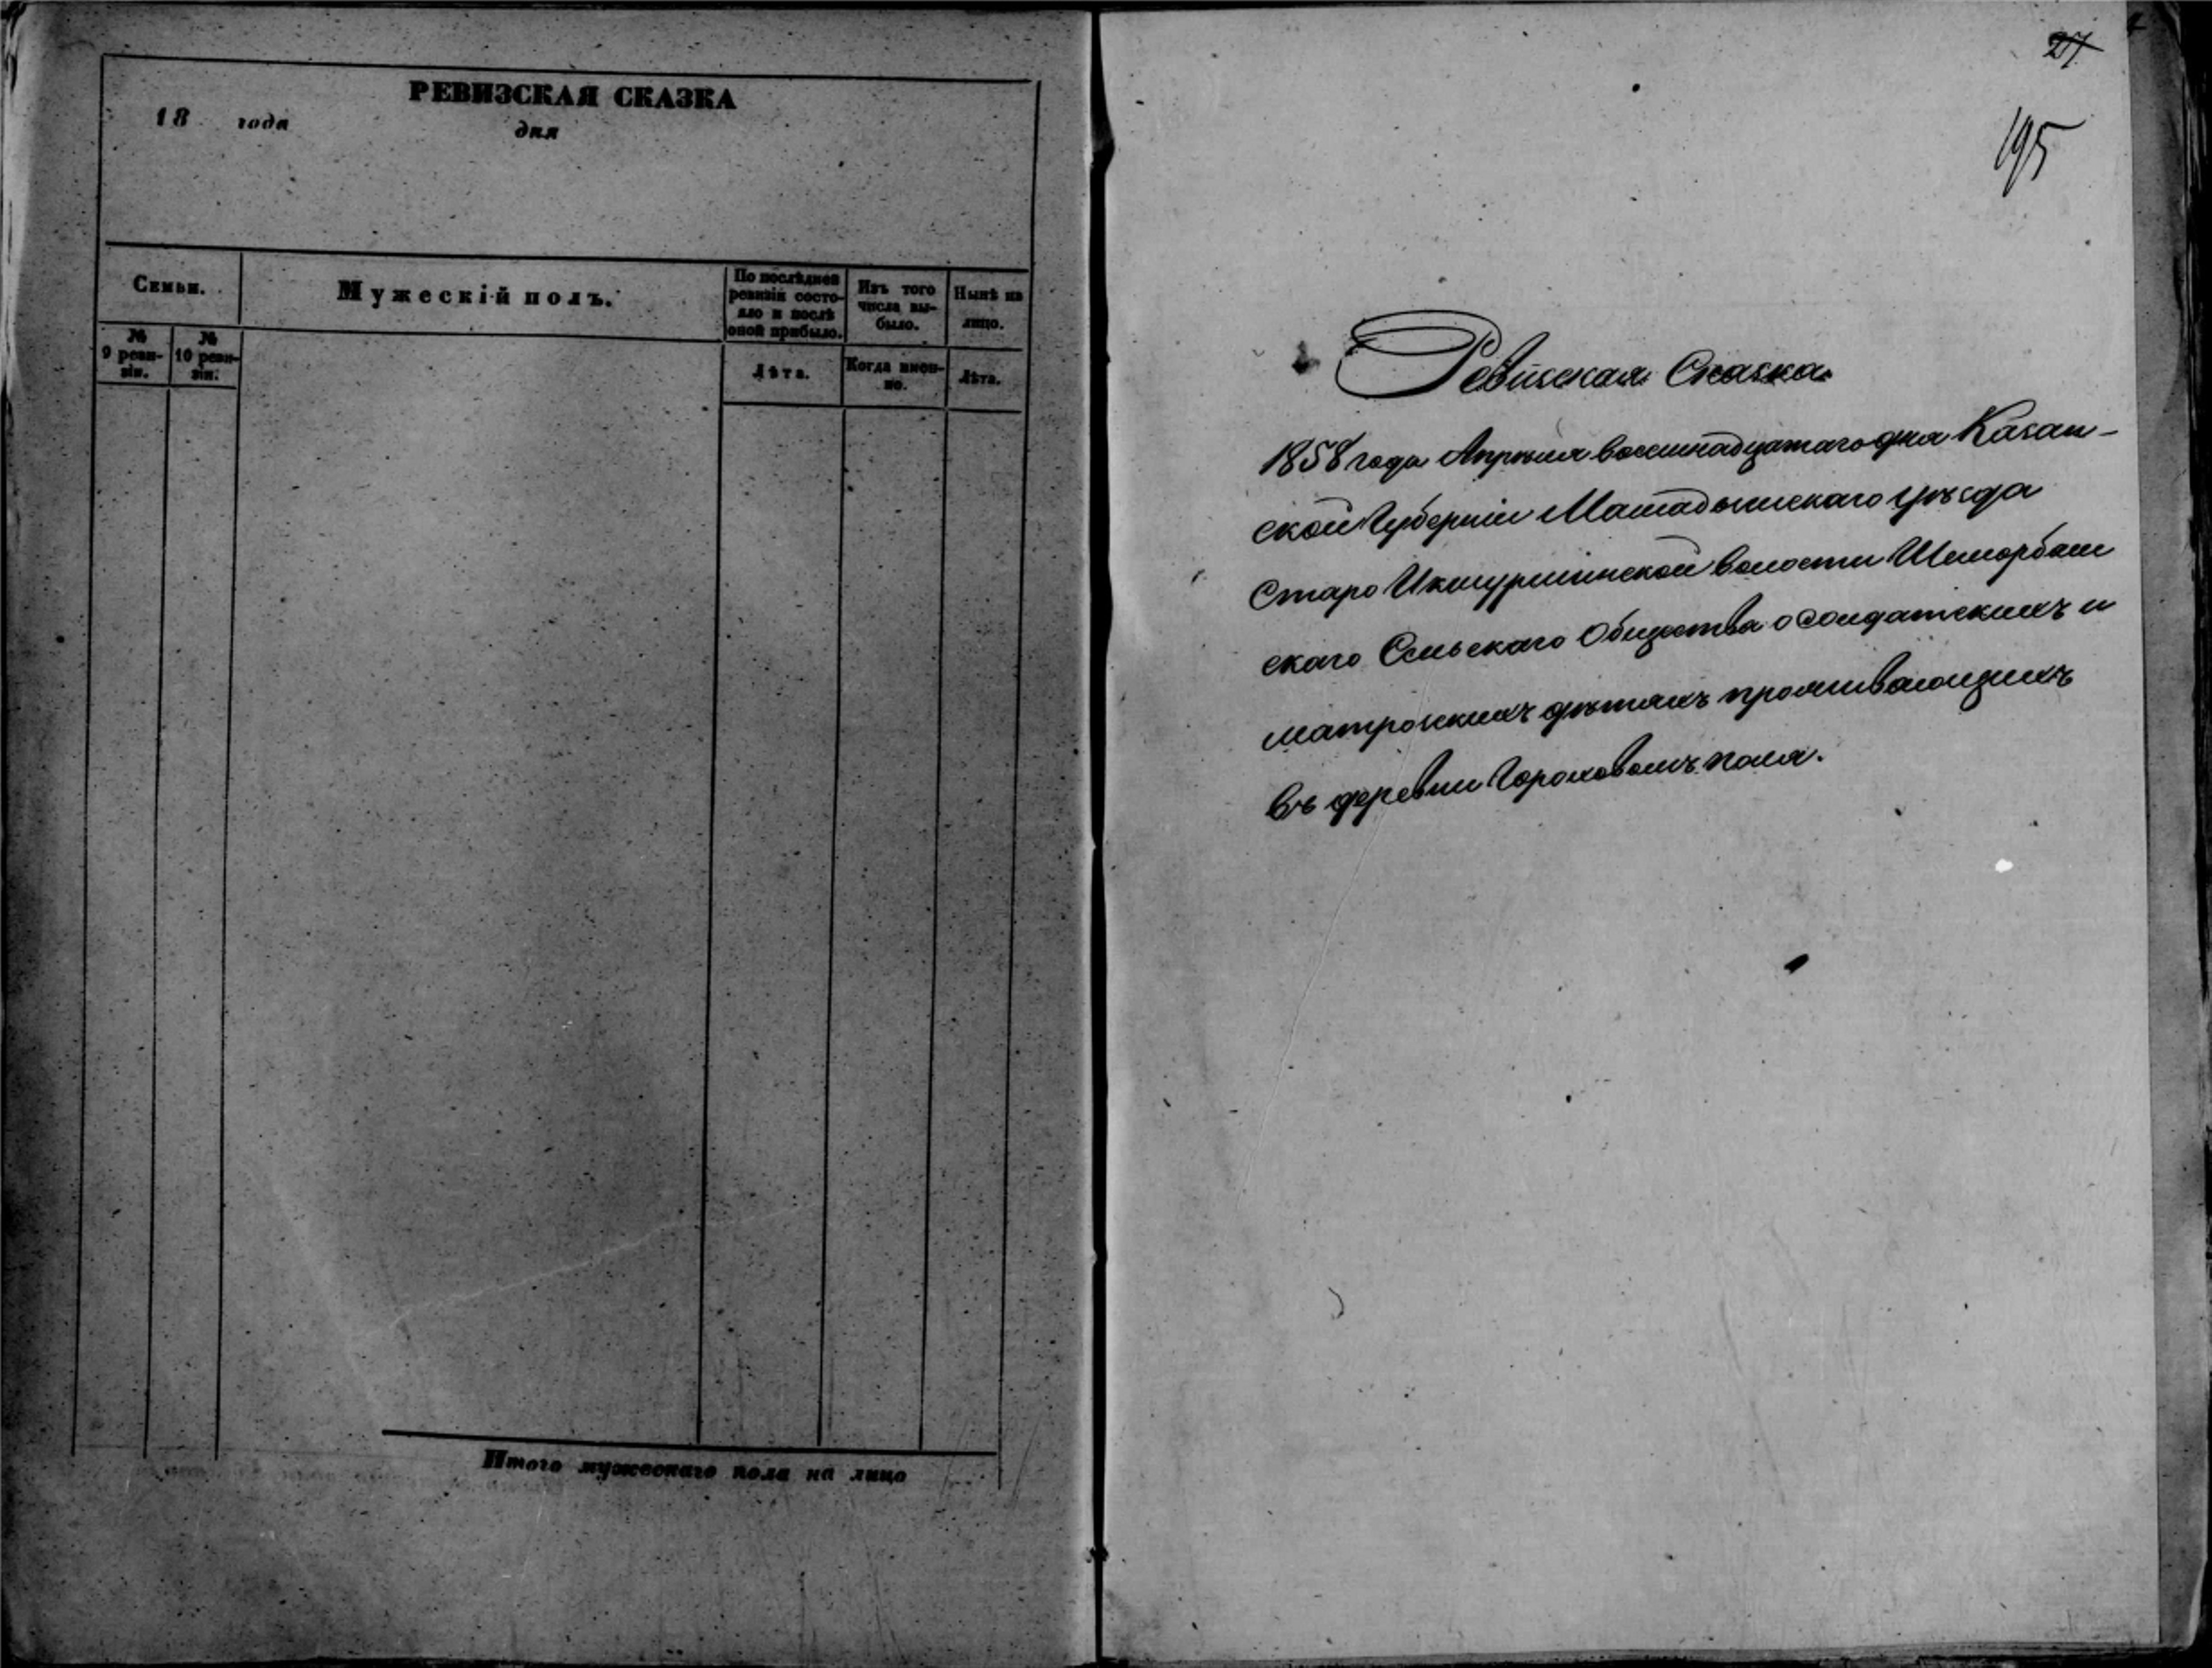 РЕВИЗСКАЯ СКАЗКА
18 года дня
Семьи.
Мужескій полъ.
По послѣдней
ревизіи состо-
яло и послѣ
оной прибыло.
Изъ того
числа вы-
было.
Нынѣ на
лицо.
№
9 реви-
зіи.
№
10 реви-
зіи.
Лѣта.
Когда имен-
но.
Лѣта.
Итого мужескаго пола на лицо
27
195
Ревизская Сказка
1858 года Апрѣля восемнадцатаго дня Казан-
ской Губерніи Мамадышскаго уѣзда
Старо Икшурминской волости Шеморбаш
скаго Сельскаго Общества о солдатскихъ и
матроскихъ дѣтяхъ проживающихъ
въ деревни Гороховомъ поля.